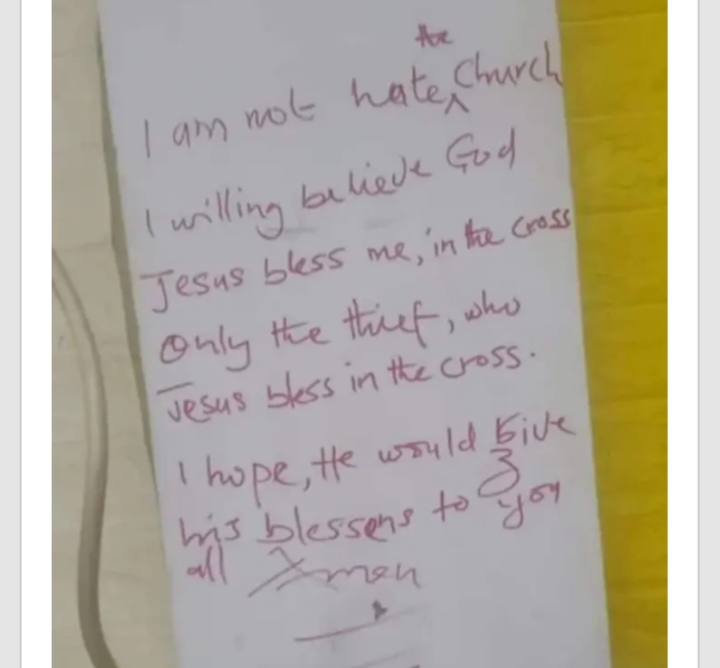 I am not hate the Church
I willing believe God
Jesus bless me, in the cross
Only the thief, who
Jesus bless in the cross.
I hope, He would give
his blessens to you
all Amen